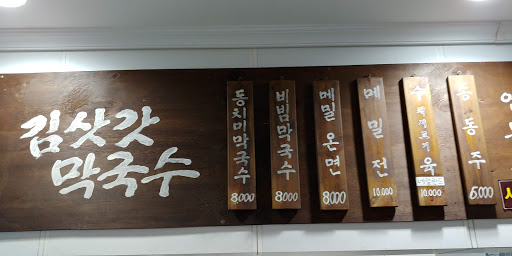 김삿갓
막국수
동치미막국수
8000
비빔막국수
8000
메밀온면
8000
메밀전
10.000
수육
10.000
동동주
6.000